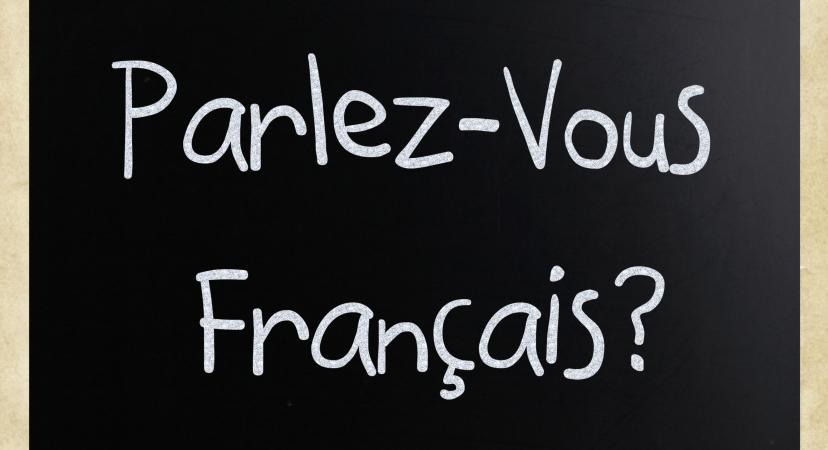 Parlez-Vous
Français?